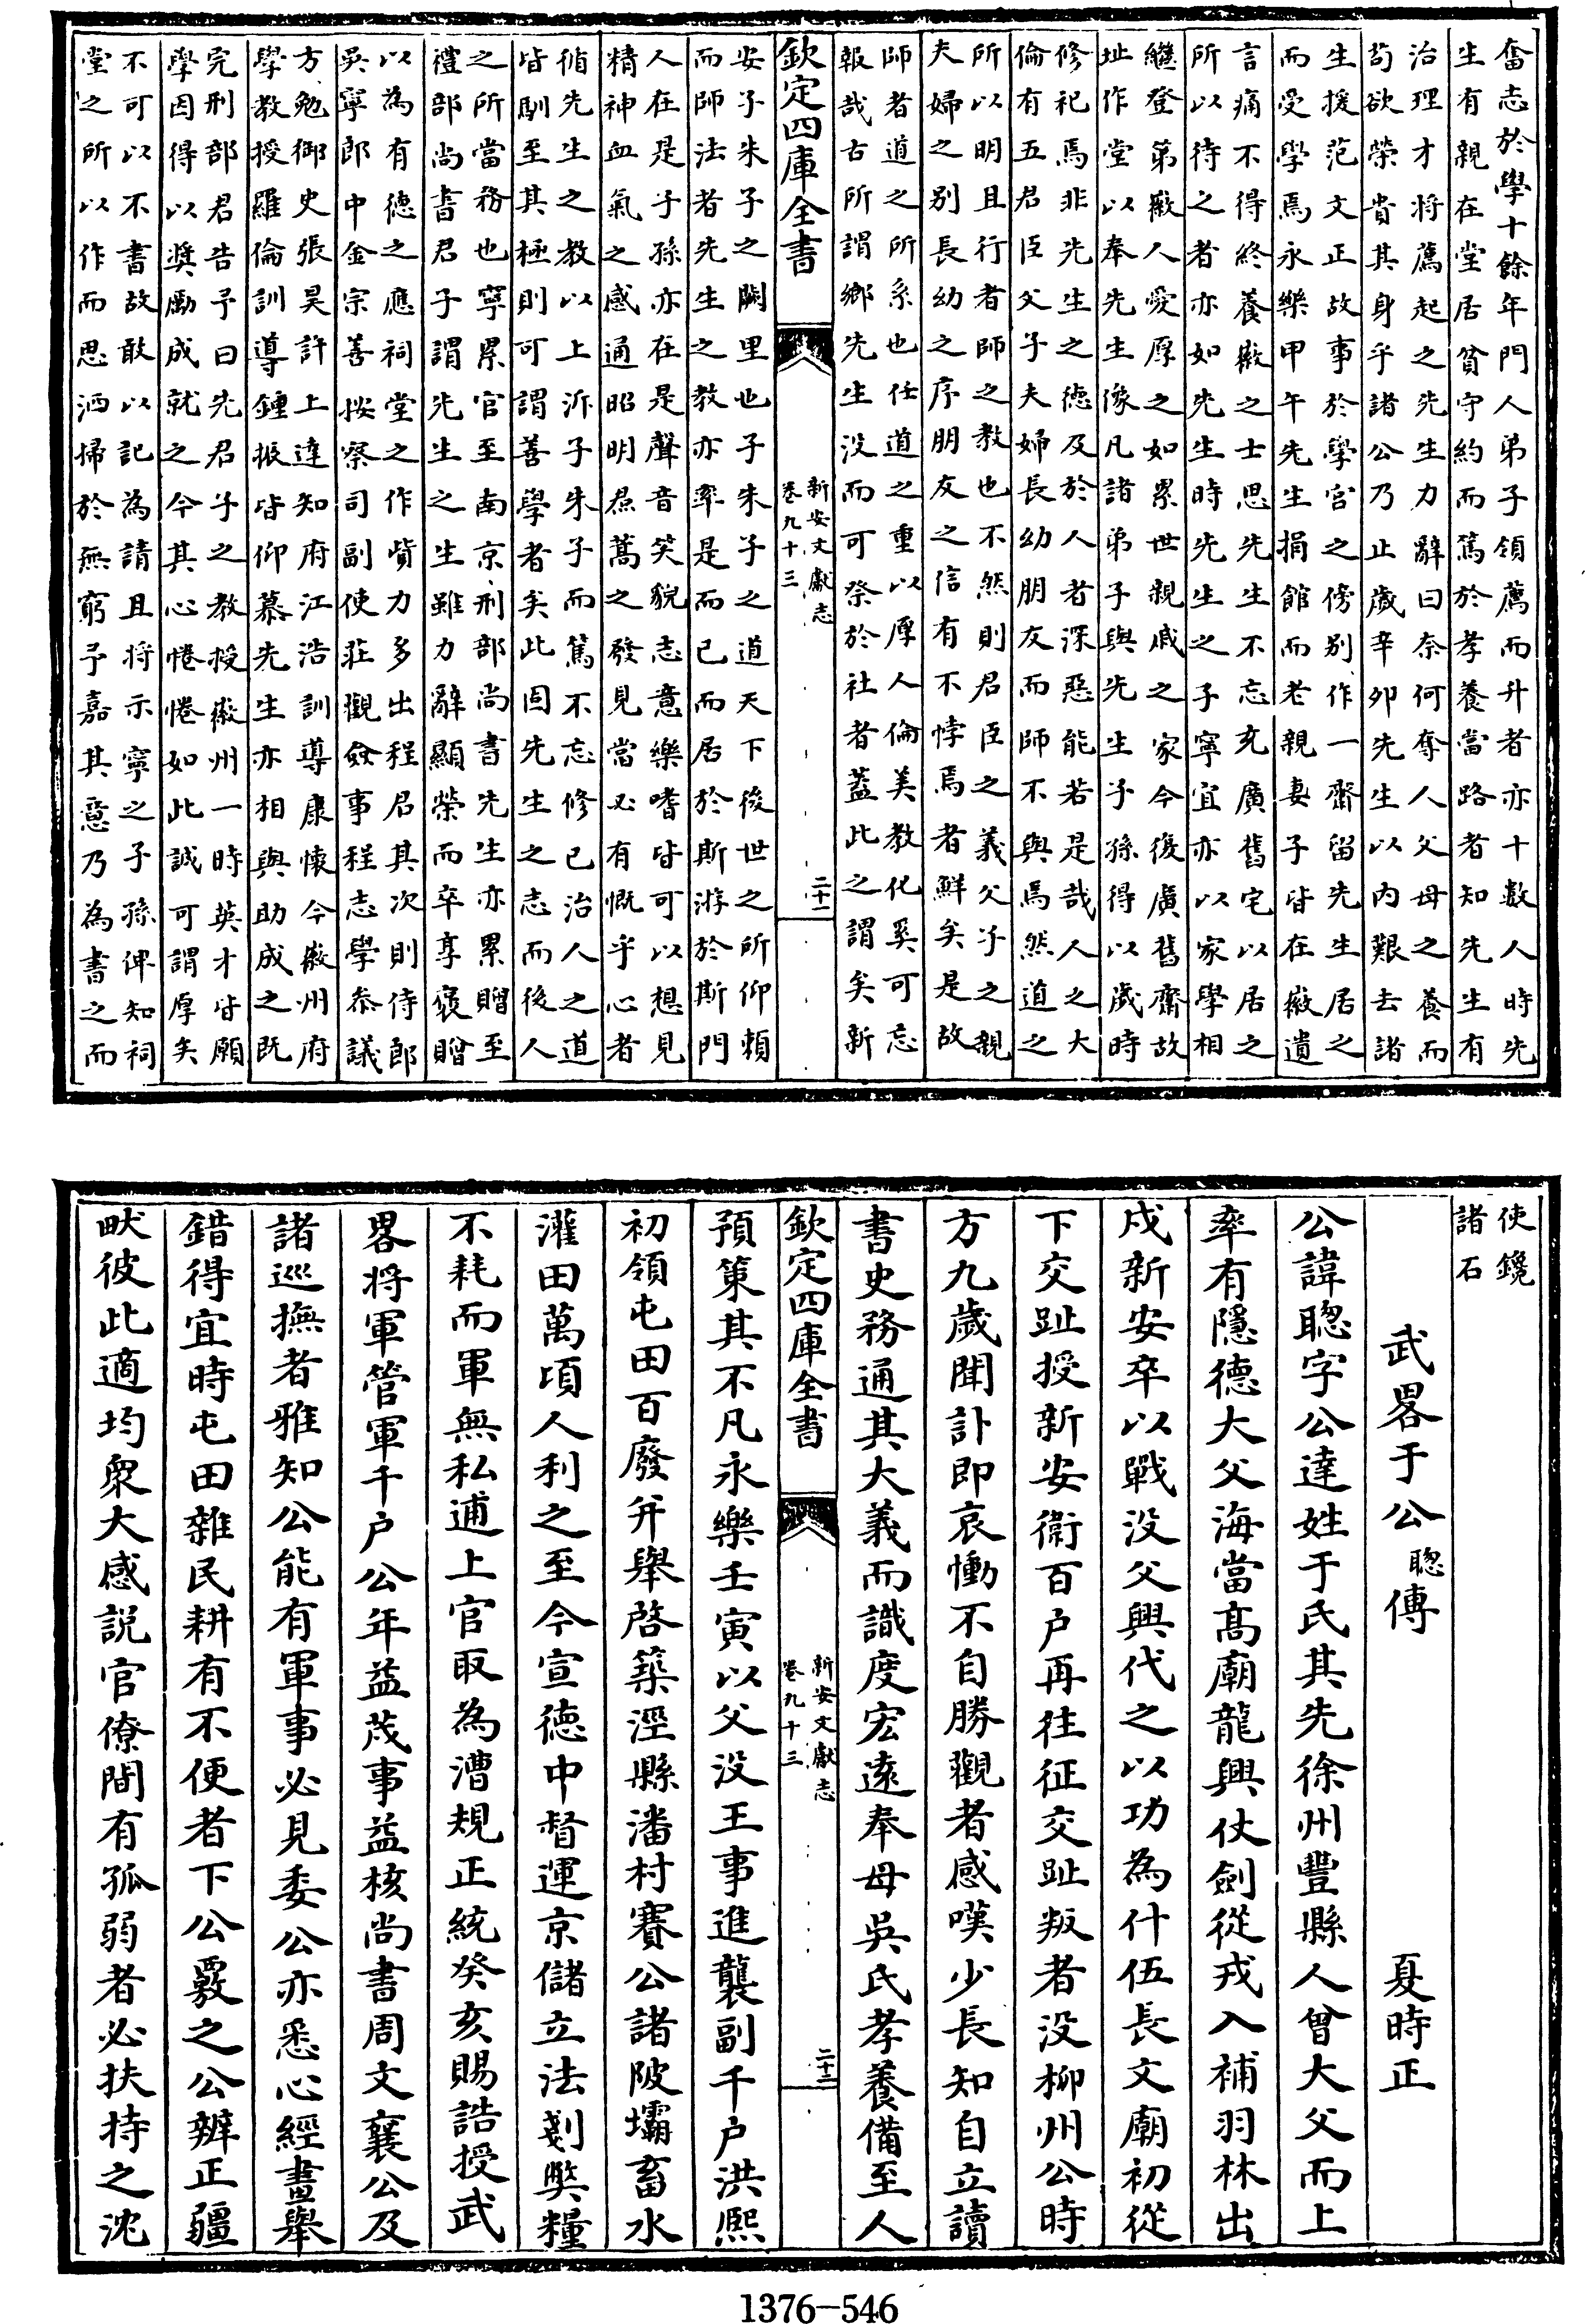 奮志於學十餘年門人弟子領薦而升者亦十數人時先
生有親在堂居貧守約而篤於孝養當路者知先生有
治理才將薦起之先生力辭曰奈何奪人父母之養而
苟欲榮貴其身乎諸公乃止歲辛夘先生以内艱去諸
生援范文正故事於學宫之傍別作一齋留先生居之
而受學焉永樂甲午先生捐館而老親妻子皆在㣲遺
言痛不得終養㣲之士思先生不忘充廣舊宅以居之
所以待之者亦如先生時先生之子寧宜亦以家學相
繼登第㣲人愛厚之如累世親戚之家今復廣舊齋故
址作堂以奉先生像凡諸弟子與先生子孫得以歲時
修祀焉非先生之德及於人者深惡能若是哉人之大
倫有五君臣父子夫婦長幼朋友而師不與焉然道之
所以明且行者師之教也不然則君臣之義父子之親
夫婦之别長幼之序朋友之信有不悖焉者鮮矣是故
師者道之所系也任道之重以厚人倫美教化奚可忘
報哉古所謂鄉先生没而可祭於社者蓋此之謂矣新
欽定四庫全書
新安文獻志
卷九十三
二十一
安子朱子之闕里也子朱子之道天下後世之所仰頼
而師法者先生之教亦率是而已而居於斯游於斯門
人在是子孫亦在是聲音笑貌志意樂嗜皆可以想見
精神血氣之感通昭明焄蒿之發見當必有慨乎心者
循先生之教以上泝子朱子而篤不忘修己治人之道
皆馴至其極則可謂善學者矣此固先生之志而後人
之所當務也寧累官至南京刑部尚書先生亦累贈至
禮部尚書君子謂先生之生雖力辭顯榮而卒享褒贈
以為有德之應祠堂之作貲力多出程君其次則侍郎
吳寧郎中金宗善按察司副使莊觀僉事程志學叅議
方勉御史張昊許上達知府江浩訓導康懷今㣲州府
學教授羅倫訓導鍾振皆仰慕先生亦相與助成之既
完刑部君告予曰先君子之教授㣲州一時英才皆願
學因得以奬勵成就之今其心惓惓如此誠可謂厚矣
不可以不書故敢以記為請且將示寧之子孫俾知祠
堂之所以作而思洒掃於無窮予嘉其意乃為書之而
使鑱
諸石
武畧于公聰傳 夏時正
公諱聰字公達姓于氏其先徐州豐縣人曾大父而上
率有隱德大父海當高廟龍興仗劍從戎入補羽林出
戍新安卒以戰没父興代之以功為什伍長文廟初從
下交趾授新安衛百户再往征交趾叛者没柳州公時
方九歲聞訃即哀慟不自勝觀者感嘆少長知自立讀
書史務通其大義而識度宏遠奉母吳氏孝養備至人
欽定四庫全書
新安文獻志
卷九十三
二十二
預策其不凡永樂壬寅以父没王事進襲副千户洪熙
初領屯田百廢并舉啓築涇縣潘村賽公諸陂壩畜水
灌田萬頃人利之至今宣德中督運京儲立法剗獘糧
不耗而軍無私逋上官取為漕規正統癸亥賜誥授武
畧將軍管軍千户公年益茂事益核尚書周文襄公及
諸巡撫者雅知公能有軍事必見委公亦悉心經畫舉
錯得宜時屯田雜民耕有不便者下公覈之公辨正疆
畎彼此適均衆大感説官僚間有孤弱者必扶持之沈
1376—546